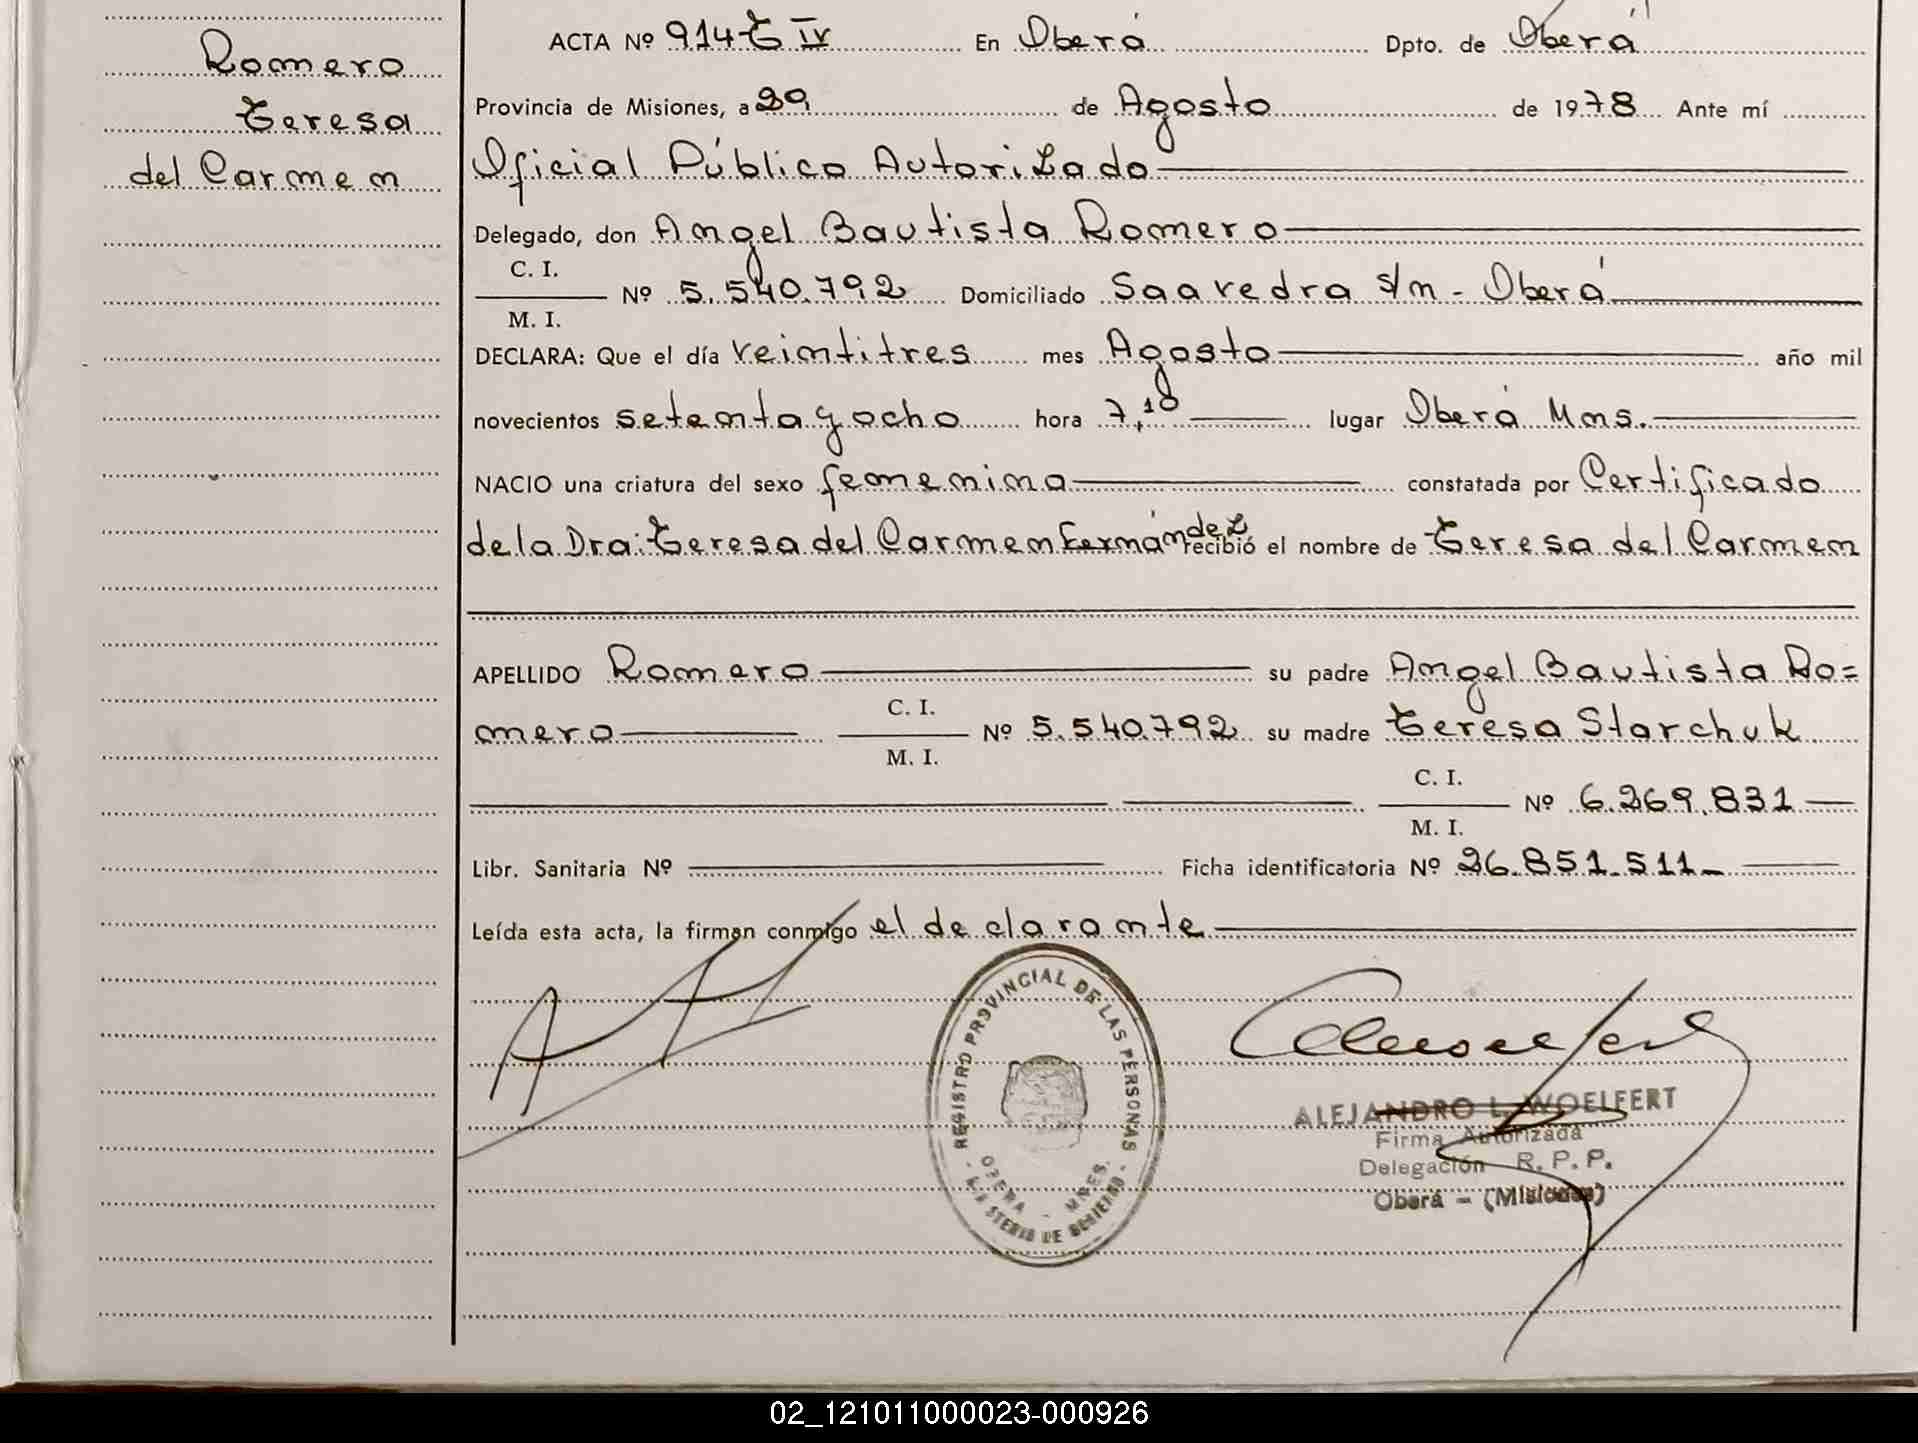 Romero
Teresa
del Carmen
ACTA Nº 914 T IV En Oberá Dpto. de Oberá
Provincia de Misiones, a 29 de Agosto de 1978 Ante mí
Oficial Público Autorizado
Delegado, don Angel Bautista Romero
C. I.
Nº 5.540.792 Domiciliado Saavedra s/n - Oberá
M. I.
DECLARA: Que el día veintitres mes Agosto año mil
novecientos setenta y ocho hora 7,10 lugar Oberá Mns.
NACIO una criatura del sexo femenino constatada por Certificado
de la Dra: Teresa del Carmen Fernández recibió el nombre de Teresa del Carmen
APELLIDO Romero su padre Angel Bautista Ro=
mero C. I. Nº 5.540.792 su madre Teresa Starchuk
M. I.
C. I.
Nº 6.269.831
M. I.
Libr. Sanitaria Nº Ficha identificatoria Nº 26.851.511
Leída esta acta, la firman conmigo el declarante
REGISTRO PROVINCIAL DE LAS PERSONAS
OBERA - MNES.
MINISTERIO DE GOBIERNO
ALEJANDRO L. WOELFERT
Firma Autorizada
Delegación R. P. P.
Oberá - (Misiones)
02_121011000023-000926